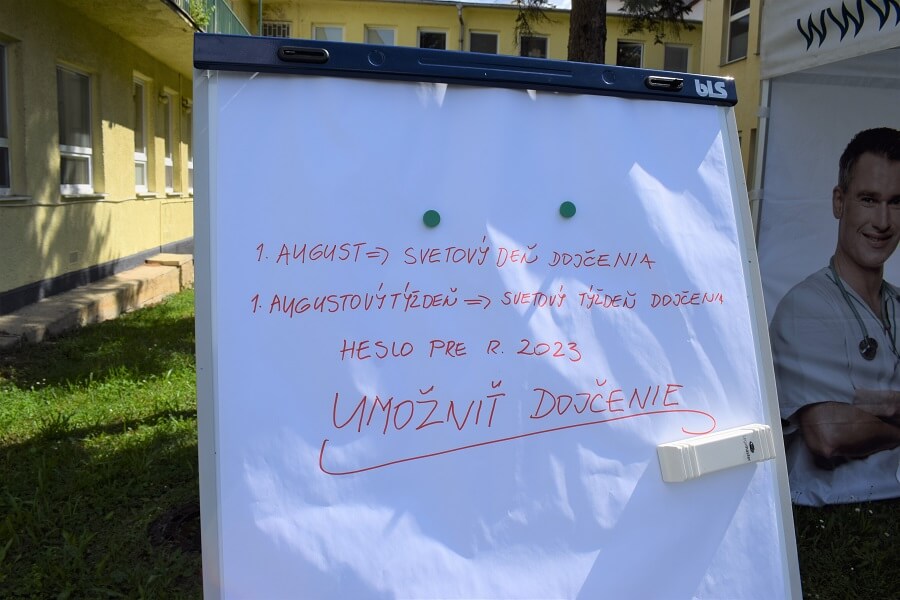 www
bLS
1. AUGUST => SVETOVÝ DEŇ DOJČENIA
1. AUGUSTOVÝ TÝŽDEŇ => SVETOVÝ TÝŽDEŇ DOJČENIA
HESLO PRE R. 2023
UMOŽNIŤ DOJČENIE